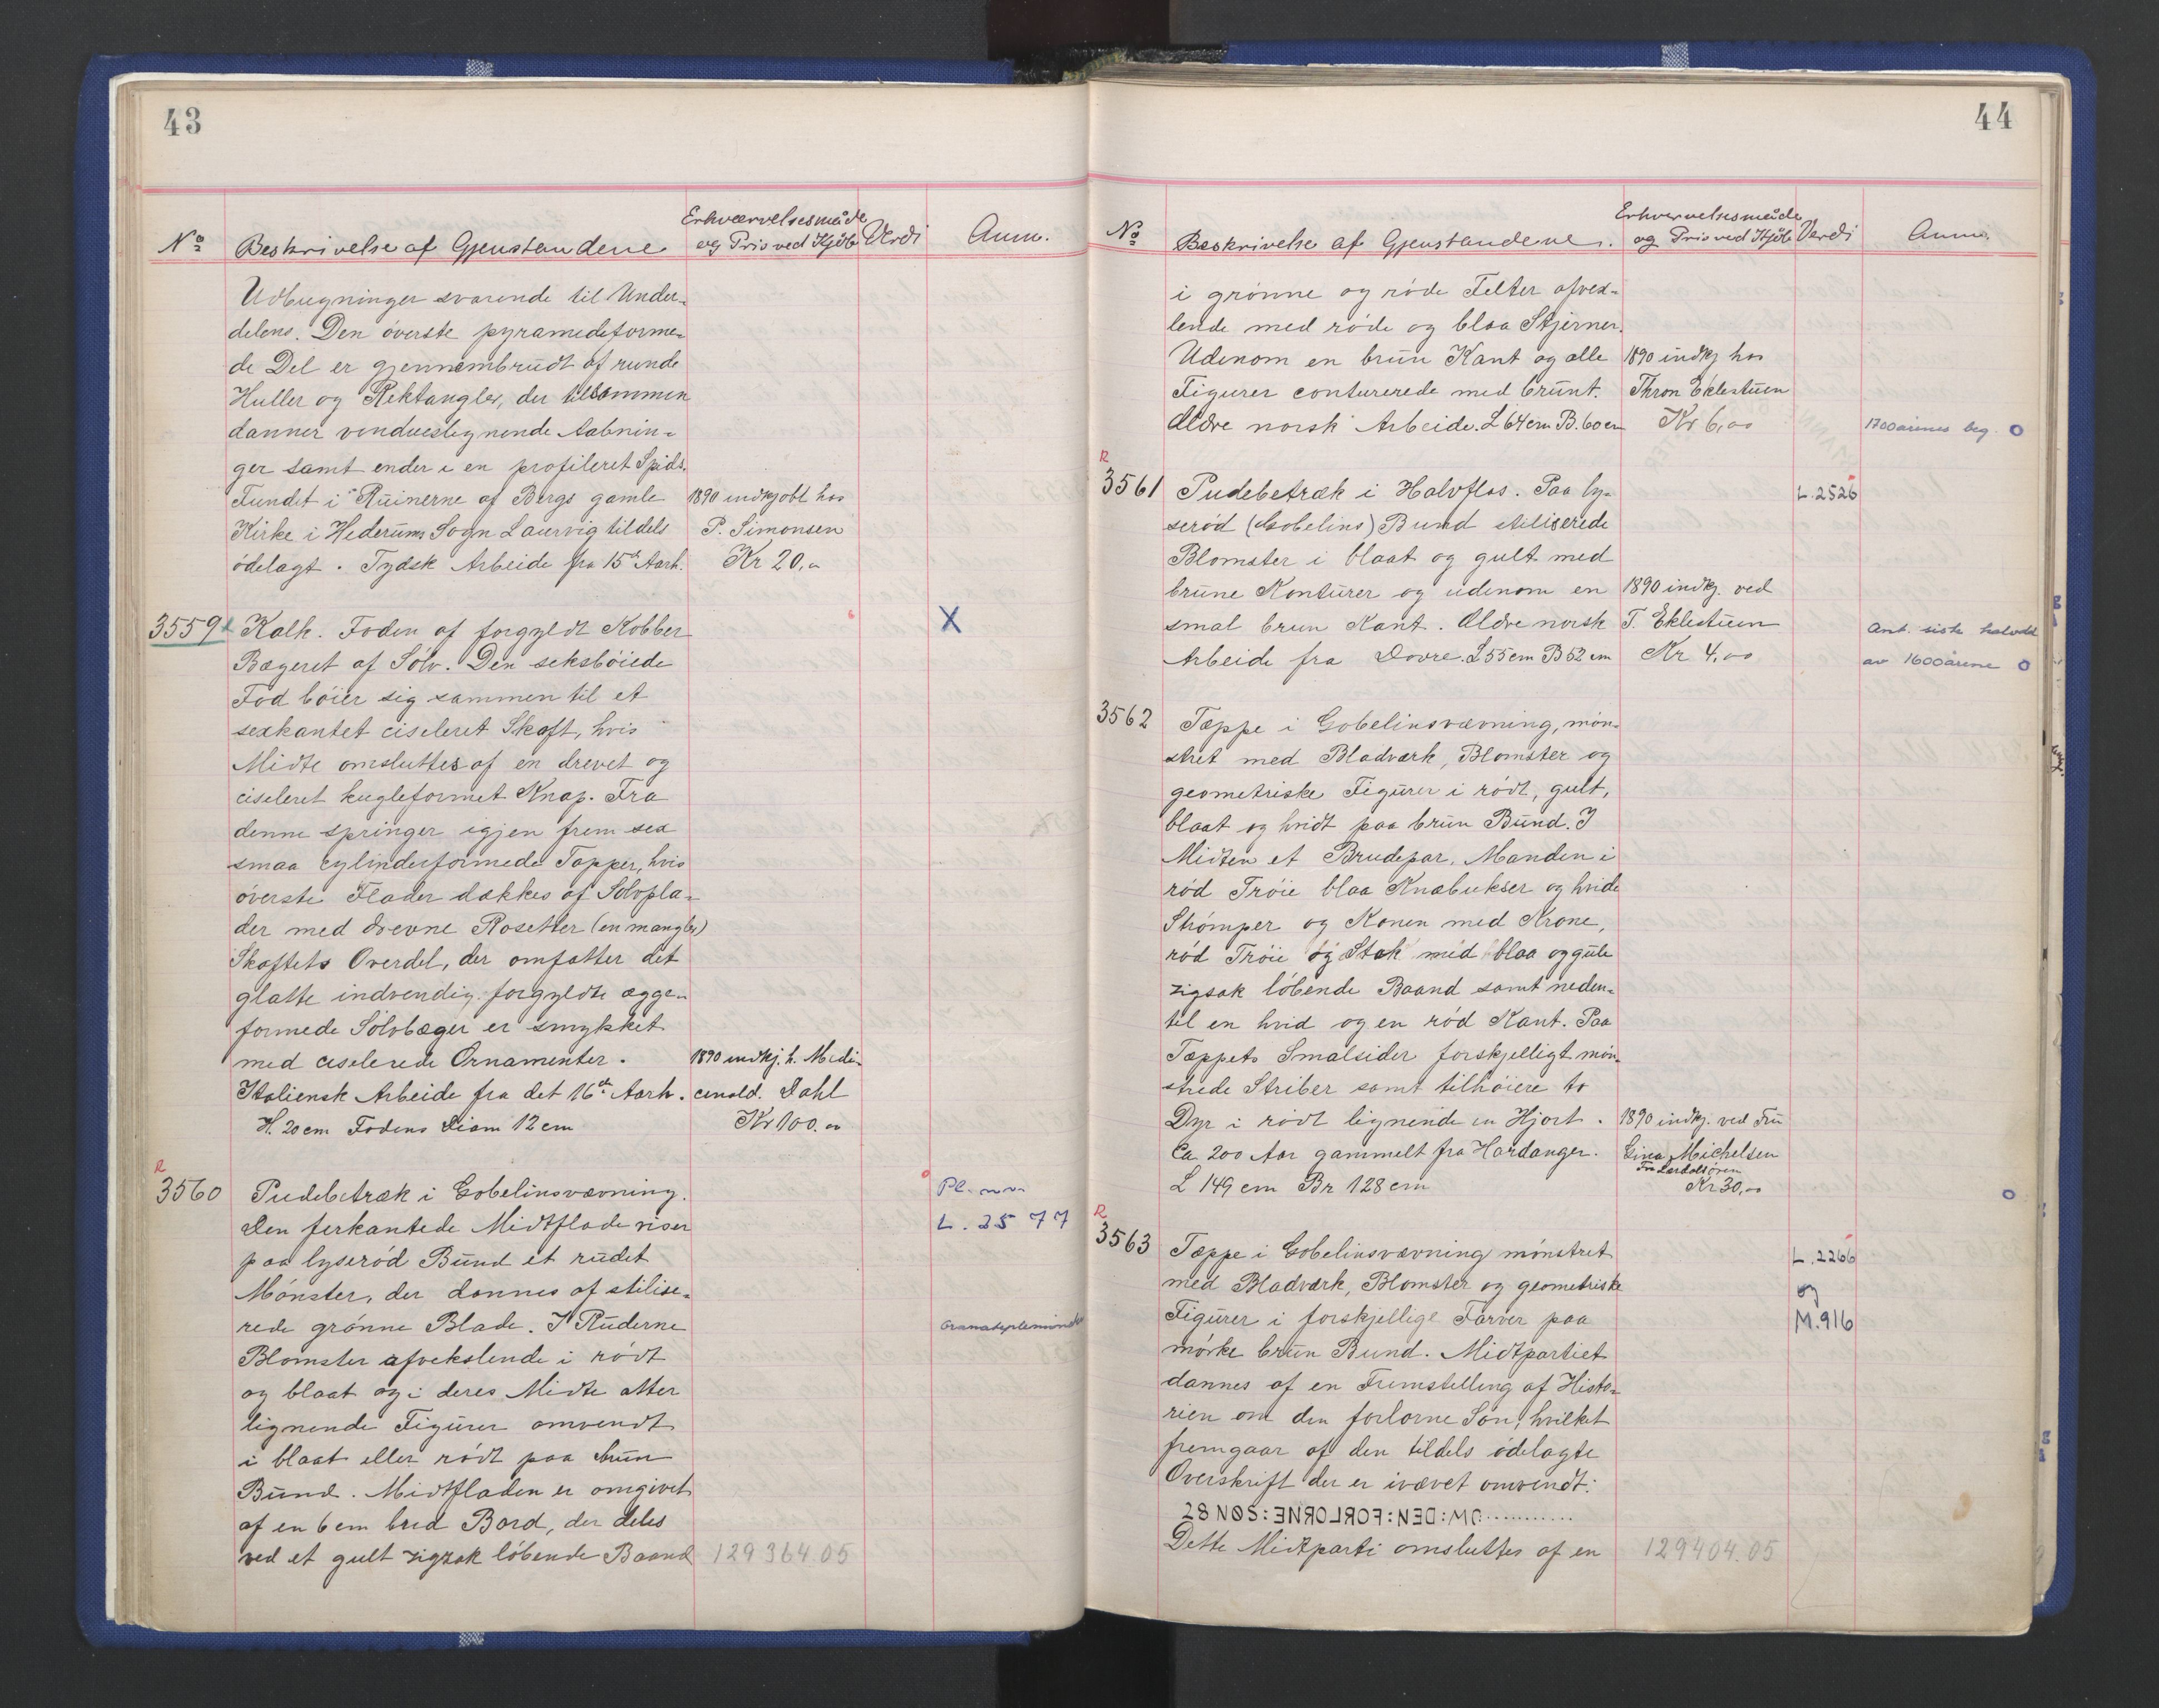 43
Erhvervelsesmåde
No Beskrivelse af Gjenstandene og Pris ved Kjøb Verdi Anm.
Udbugninger svarende til Under-
delens. Den øverste pyramedeforme-
de Del er gjennembrudt af runde
Huller og Rektangler, der tilsammen
danner vindueslignende Aabnin-
ger samt ender i en profileret Spids.
Fundet i Ruinerne af Bergs gamle 1890 indkjøbt hos
Kirke i Hederums Sogn Laurvig tildels P. Simonsen
ødelagt. Tydsk Arbeide fra 15de Aarh. Kr 20,00
3559 Kalk. Foden af forgyldt Kobber X
Bægeret af Sølv. Den seksbøiede
Fod bøier sig sammen til et
sexkantet ciseleret Skaft, hvis
Midte omsluttes af en drevet og
ciseleret kugleformet Knap. Fra
denne springer igjen frem sex
smaa cylinderformede Tapper, hvis
øverste Flader dækkes af Sølvpla-
der med drevne Rosetter (en mangler)
Skaftets Overdel, der omfatter det
glatte indvendig forgyldte ægge-
formede Sølvbæger er smykket
med ciselerede Ornamenter. 1890 indkj. h. Medi-
Italiensk Arbeide fra det 16de Aarh. cinald. Dahl
H. 20 cm Fodens Diam 12 cm Kr 100.00
R
3560 Pudebetræk i Gobelinsvævning. Pl.
Den firkantede Midtflade viser L. 2577
paa lyserød Bund et rudet
Mønster, der dannes af stilise-
rede grønne Blade. I Ruderne
Blomster afvekslende i rødt
og blaat og i deres Midte atter
lignende Figurer omvendt
i blaat eller rødt paa brun
Bund. Midtfladen er omgivet
af en 6 cm bred Bord, der deles
ved et gult zigzak løbende Baand 129 364.05
44
Erhvervelsesmåde
No Beskrivelse af Gjenstandene. og Pris ved Kjøb Verdi Anm.
i grønne og røde Felter afvex-
lende med røde og blaa Stjerner.
Udenom en brun Kant og alle 1890 indkj hos
Figurer conturerede med brunt. Thron Eklestuen
Ældre norsk Arbeide. L 64 cm B. 60 cm Kr 6,00 1700årenes beg. O
R
3561 Pudebetræk i Halvflos. Paa ly- L. 2526
serød (Gobelins) Bund stiliserede
Blomster i blaat og gult med
brune Konturer og udenom en 1890 indkj. ved
smal brun Kant. Ældre norsk T. Eklestuen Ant. siste halvdel
Arbeide fra Dovre. L 55 cm B 52 cm Kr 4,00 av 1600årene O
3562 Tæppe i Gobelinsvævning, møn-
stret med Bladværk, Blomster og
geometriske Figurer i rødt, gult,
blaat og hvidt paa brun Bund. I
Midten et Brudepar, Manden i
rød Trøie blaa Knæbukser og hvide
Strømper og Konen med Krone,
rød Trøie og Stak med blaa og gule
zigsak løbende Baand samt neden-
til en hvid og en rød Kant. Paa
Tæppets Smalsider forskjelligt møn-
strede Striber samt tilhøiere to
Dyr i rødt lignende en Hjort. 1890 indkj. ved Fru
Ca 200 Aar gammelt fra Hardanger. Gina Michelsen
Fra Lærdalsøren
L 149 cm Br 128 cm Kr 30,00 O
R
3563 Tæppe i Gobelinsvævning mønstret L. 2266
med Bladværk, Blomster og geometriske og
Figurer i forskjellige Farver paa M. 916
mørke brun Bund. Midtpartiet
dannes af en Fremstelling af Histo-
rien om den forlorne Søn, hvilket
fremgaar af den tildels ødelagte
Overskrift der er ivævet omvendt:
28 NØS:ENROLROF:NED:MO...........
Dette Midtparti omsluttes af en 129404.05